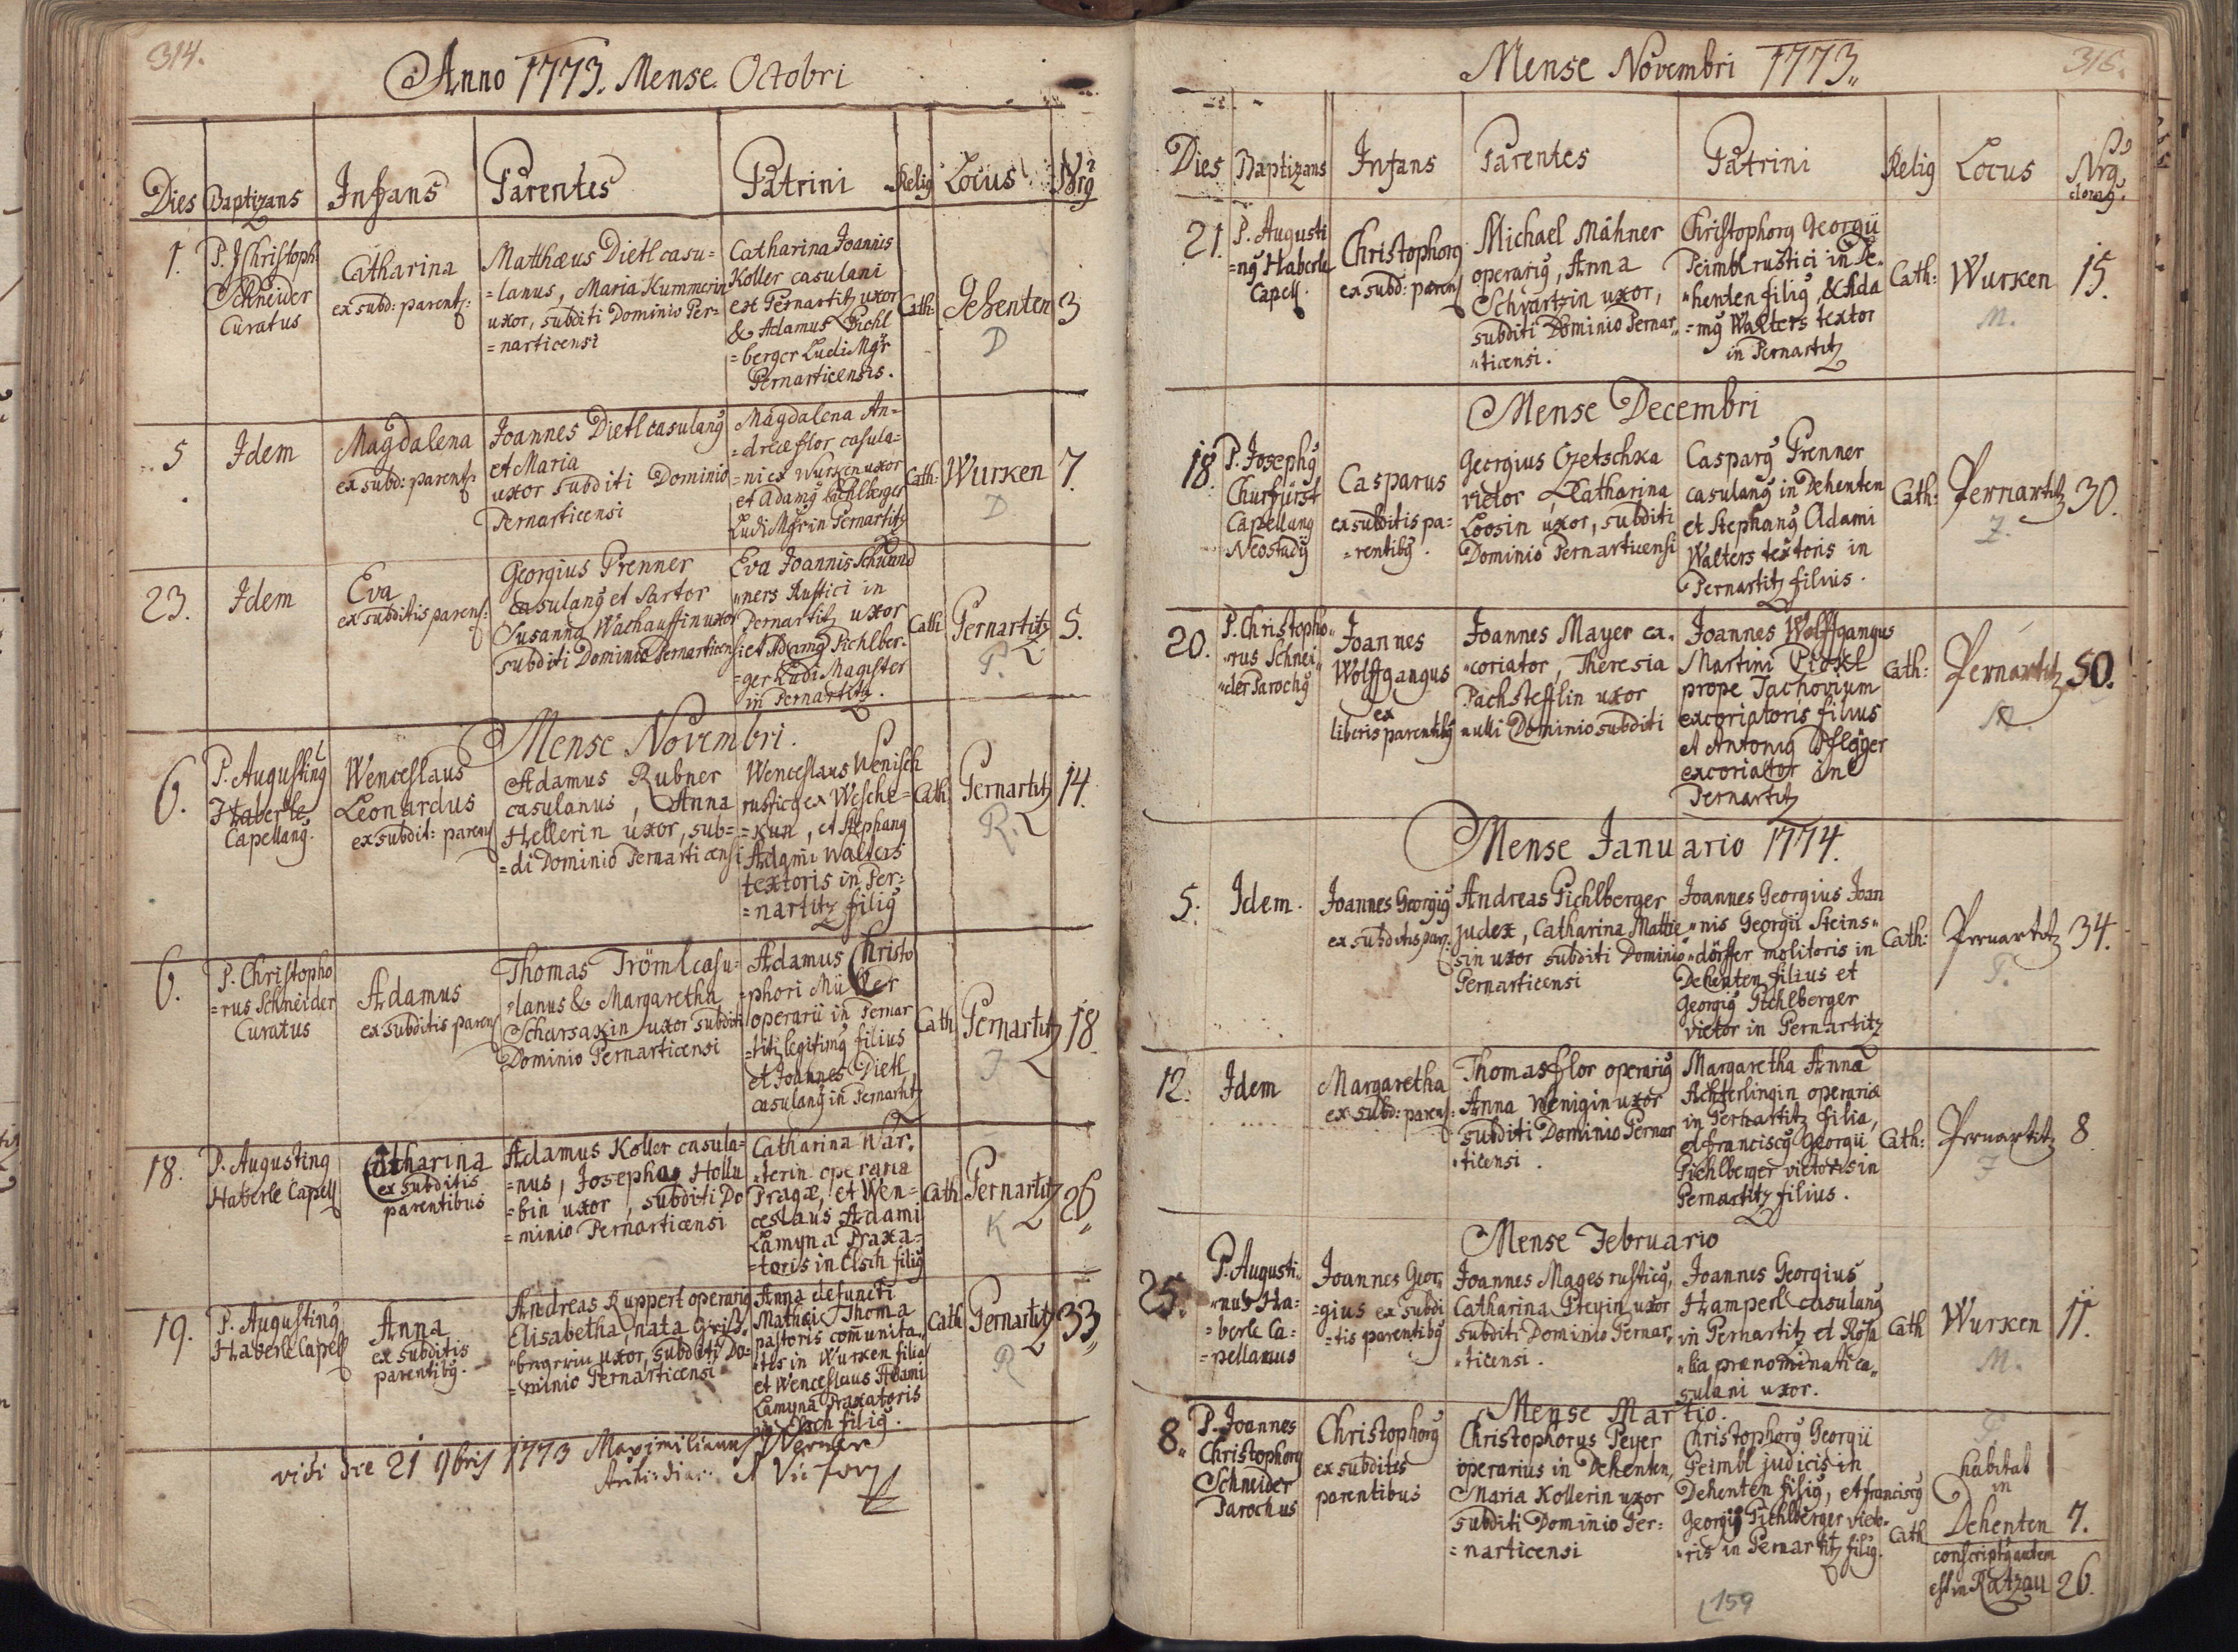 314.
Anno 1773. Mense Octobri
Dies Baptizans Infans Parentes Patrini Relig Locus Nrg
1.
P. J Christoph:
Schneider
Curatus
Catharina
ex subd: parent:
Matthæus Dietl casu=
=lanus, Maria Kummerin
uxor, subditi Dominio Per=
=narticensi
Catharina Joannis
Koller casulani
ex Pernartitz uxor
& Adamus Pichl
=berger Ludi Mgr
Pernarticensis.
Cath:
Dehenten
D
3
5
Idem
Magdalena
ex subd: parent:
Joannes Dietl casulang
et Maria
uxor subditi Dominio
Pernarticensi
Magdalena An=
=dreæ flor casula=
=ni ex Wurken uxor
et Adamg Pichlberger
Ludi Mgr in Pernartitz
Cath:
Wurken
D
7.
23.
Idem
Eva
ex subditis parent:
Georgius Prenner
Casulang et Sartor
Susanna Wachauffin uxor
subditi Dominio Pernarticensi
Eva Joannis Schwand
"ners Rustici in
Pernartitz uxor
et Adamg Pichlber=
=ger Ludi Magister
in Pernartitz.
Cath
Pernartitz
P.
5.
Mense Novembri.
6.
P. Augusting
Haberle
Capellang.
Wenceslaus
Leonardus
ex subdit: parent
Adamus Rubner
casulanus, Anna
Hellerin uxor, sub=
=di Dominio Pernarticensi
Wenceslaus Wenisch
rusticg ex Wesche=
=kun, et Stephang
Adami Walters
textoris in Per=
=nartitz filig
Cath
Pernartitz
R.
14.
6.
P. Christopho
=rus Schneider
Curatus
Adamus
ex subditis parent
Thomas Trömlcasu=
=lanus & Margaretha
Scharsaxin uxor subditi
Dominio Pernarticensi
Adamus Christo
=phori Müller
operarii in Pernar
=titz legitimg filius
et Joannes Dietl
casulang in Pernartitz
Cath
Pernartitz
18
18.
P. Augusting
Haberle Capell
Catharina
ex subditis
parentibus
Adamus Koller casula=
=nus, Josepha Hollu
=bin uxor, subditi Do
=minio Pernarticensi
Catharina War,
=terin operaria
Pragæ, et Wen=
ceslaus Adami
Lamyna Praxa=
=toris in Elsch filig
Cath
Pernartitz
K
26
19.
P. Augusting
Haberle Capell
Anna
ex subditis
parentibg.
Andreas Ruppert operarig
Elisabetha, nata Griß"
"bergerin uxor, subditi Do=
=minio Pernarticensi
Anna defuncti
Mathæi Thoma
pastoris comunita"
"tis in Wurken filia
et Wenceslaus Adami
Lamyna Praxatoris
in Elsch filig.
Cath
Pernartitz
R
33
vidi die 21 9bris 1773 Maximilianus Werner
316.
Mense Novembri 1773.
Dies Baptizans Infans Parentes Patrini Relig Locus Nrg
domg.
21.
P. Augusti
=ng Haberle
Capell.
Christophorg
ex subd: parent
Michael Mähner
operarig, Anna
Schvartzin uxor,
subditi Dominio Pernar"
"ticensi.
Christophorg Georgii
Peimbl rustici in De"
"henten filig, & Ada
=mg Walters textor
in Pernartitz
Cath:
Wurken
M.
15.
Mense Decembri
18.
P. Josephg
Churfürst
Capellang
Neostadij
Casparus
ex subditis pa=
=rentibg.
Georgius Czetschka
vietor, Catharina
Loosin uxor, subditi
Dominio Pernarticensi
Casparg Prenner
casulang in Dehenten
et Stephang Adami
Walters textoris in
Pernartitz filius.
Cath:
Pernartitz
Z.
30.
20.
P. Christopho"
"rus Schnei"
"der Parochg
Joannes
Wolffgangus
ex
liberis parentibg
Joannes Mayer ex"
"coriator, Theresia
Pachstefflin uxor
nulli Dominio subditi
Joannes Wolffgangus
Martini Pickl
prope Tachovium
excoriatoris filius
et Antonig Pfleger
excoriator in
Pernartitz
Cath:
Pernartitz
50.
Mense Januario 1774.
5.
Idem.
Joannes Georgig
ex subditis par:
Andreas Pichlberger
judex, Catharina Mattie"
sin uxor subditi Dominio
Pernarticensi
Joannes Georgius Joan
"nis Georgii Steins"
"dörffer molitoris in
Dehenten filius et
Georgig Pichlberger
vietor in Pernartitz
Cath:
Pernartitz
P.
34.
12.
Idem
Margaretha
ex subd: parent:
Thomas flor operarig
Anna Wenigin uxor
subditi Dominio Pernar
"ticensi.
Margaretha Anna
Achterlingin operariæ
in Pernartitz filia,
et Franciscg Georgii
Pichlberger vietoris in
Pernartitz filius.
Cath:
Pernartitz
F
8
Mense Februario
25.
P. Augusti"
"nus Ha=
=berle Ca=
=pellanus
Joannes Geor,
=gius ex subdi
=tis parentibg
Joannes Mages rusticg,
Catharina Pteyin uxor
subditi Dominio Pernar"
"ticensi.
Joannes Georgius
Hamperl casulang
in Pernartitz et Rosa
"lia prænominati ca"
sulani uxor.
Cath
Wurken
M.
11.
Mense Martio.
8.
P. Joannes
Christophorg
Schneider
Parochus
Christophorg
ex subditis
parentibus
Christophorus Peyer
operarius in Dehenten,
Maria Kollerin uxor
subditi Dominio Per=
=narticensi
Christophorg Georgii
Peimbl judicis in
Dehenten filig, et franciscg
Georgii Pichlberger vieto"
"ris in Pernartitz filig.
Cath
P.
habitat
in
Dehenten 7.
conscriptg autem
est in Ratzau 26.
159